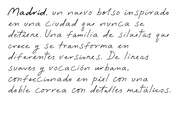 Madrid, un nuevo bolso inspirado
en una ciudad que nunca se
detiene. Una familia de siluetas que
crece y se transforma en
diferentes versiones. De líneas
suaves y vocación urbana,
confeccionado en piel con una
doble correa con detalles metálicos.